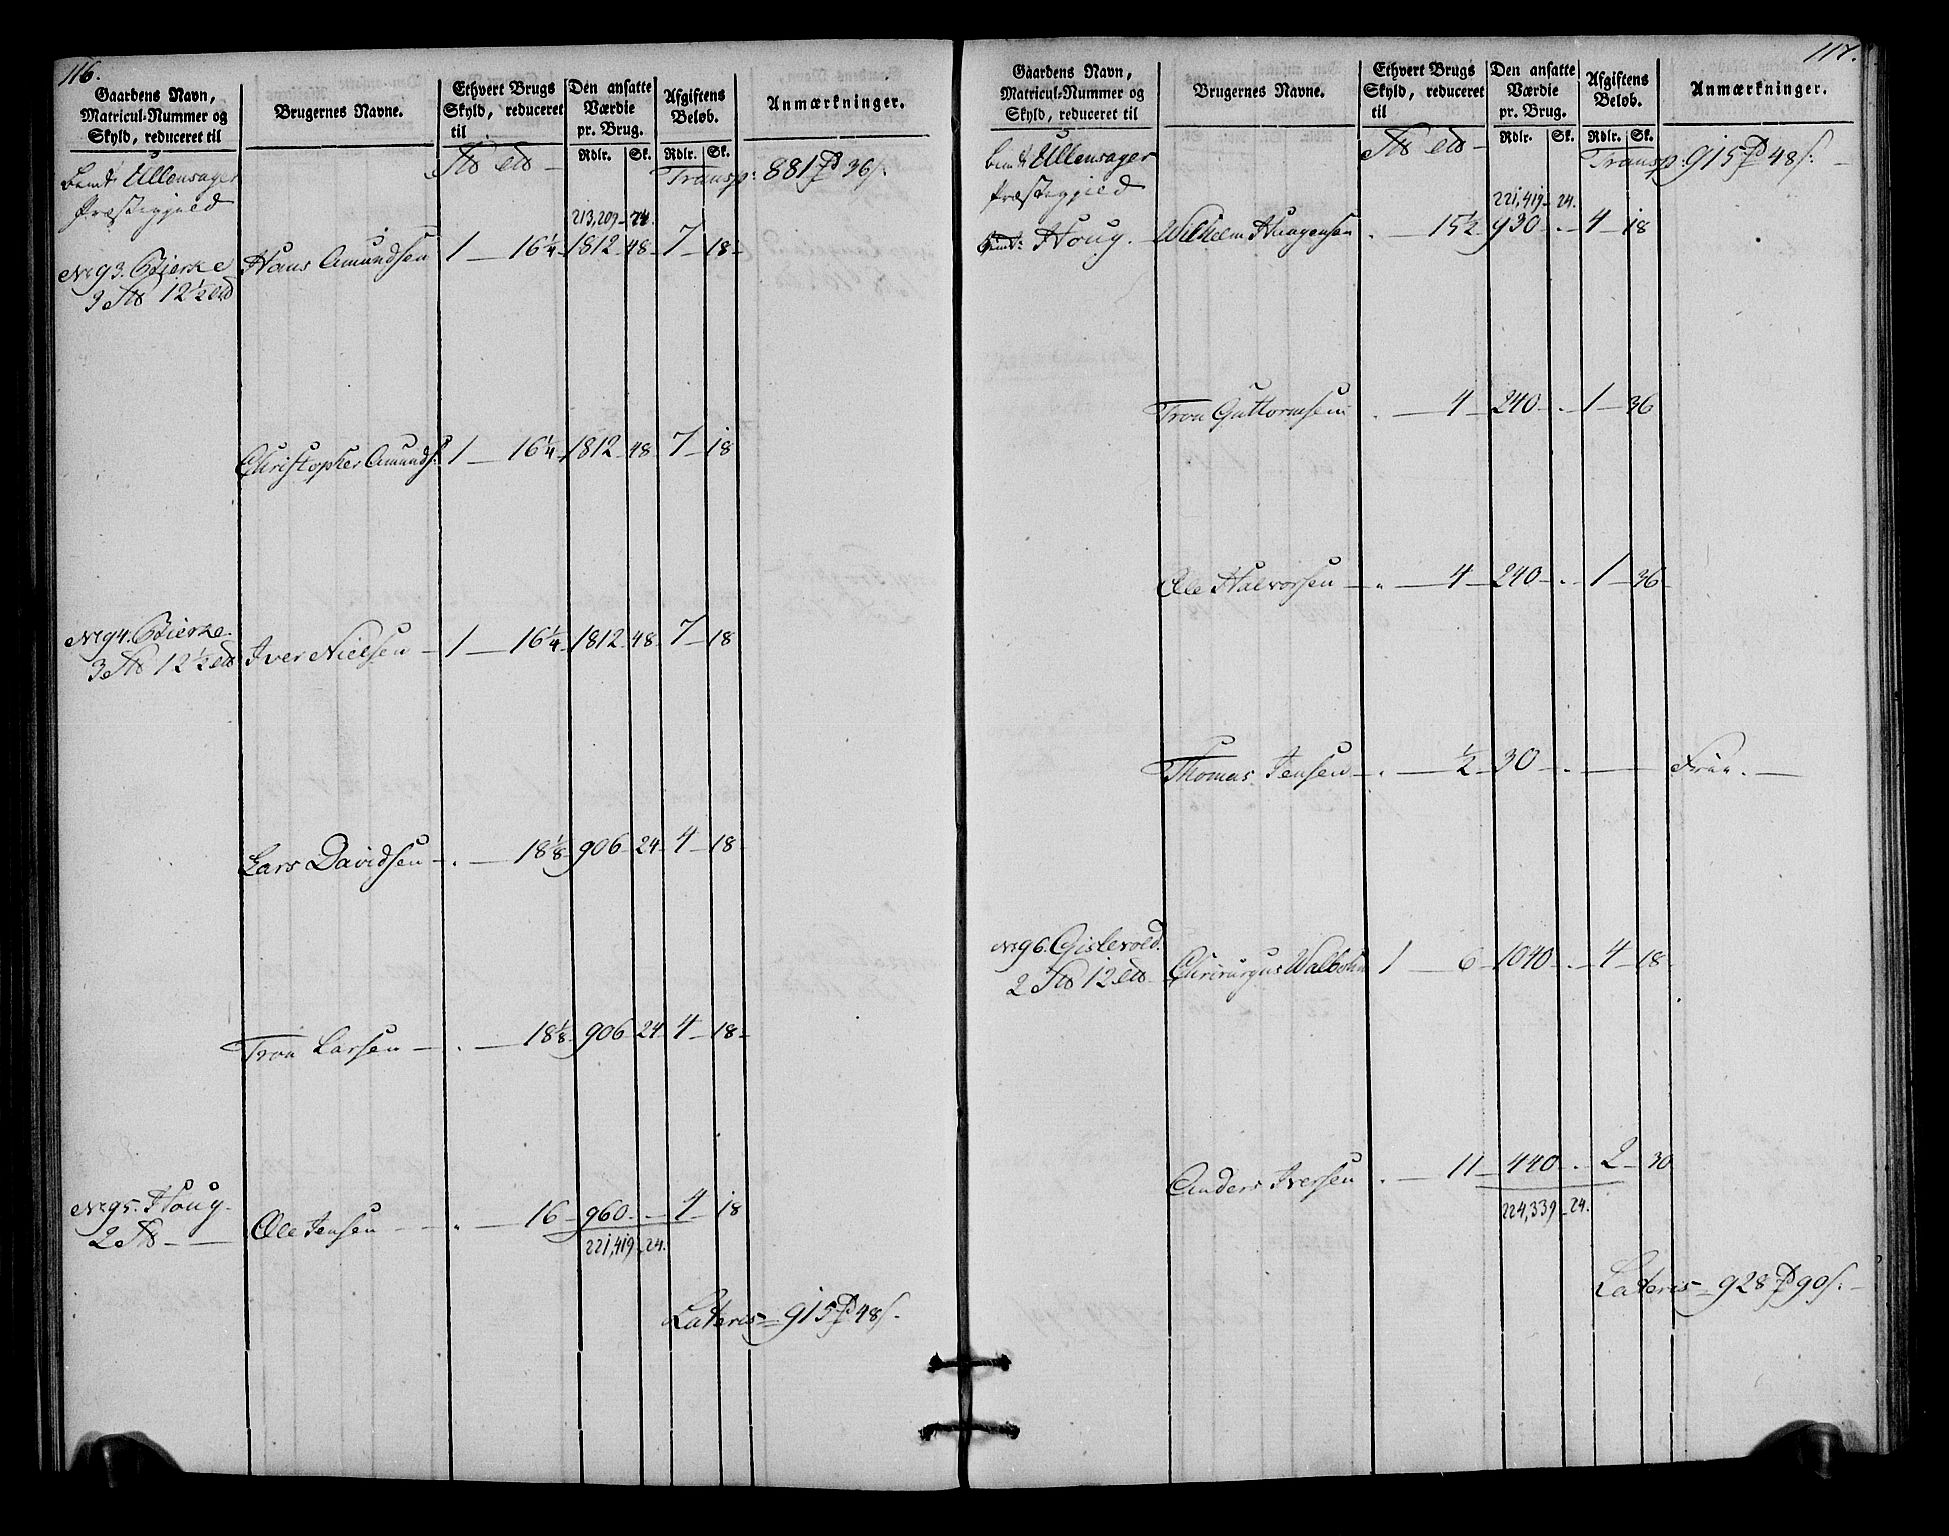 116.
Gaardens Navn,
Matricul-Nummer og
Skyld, reduceret til
Brugernes Navne.
Ethvert Brugs
Skyld, reduceret
til
Den ansatte
Værdie
pr. Brug.
Rdlr. Sk.
Afgiftens
Beløb.
Rdlr. Sk.
Anmærkninger.
Ullensager
Præstegjeld
Transp: 881 36 s.
213,209 - 24.
No 93. Bierke
3 12½
Hans Amundsen 1 - 16¼ - 1812 - 48 - 7 - 18 -
Christopher Amunds: 1 - 16¼ - 1812 - 48 - 7 - 18
No 94. Bierke.
3 12½
Iver Nielsen - 1 - 16¼ - 1812 - 48 - 7 - 18
Lars Davidsen - . - 18⅛ - 906 - 24 - 4 - 18 -
Tron Larsen - . - 18⅛ - 906 - 24 - 4 - 18 -
No 95. Houg -
2
Ole Jensen - " - 16 - 960 - . - 4 - 18
221,419 - 24.
Lateris = 915 48 s.
117.
Gaardens Navn,
Matricul-Nummer og
Skyld, reduceret til
Brugernes Navne.
Ethvert Brugs
Skyld, reduceret
til
Den ansatte
Værdie
pr. Brug.
Rdlr. Sk.
Afgiftens
Beløb.
Rdlr. Sk.
Anmærkninger.
Ullensager
Præstegjeld
Transp: 915 48 s: -
221,419 - 24.
Houg. - Wilhelm Haagensen . - 15½ 930 - . - 4 - 18
Tron Guttormsen . - 4 - 240 - . - 1 - 36
Ole Halvorsen - " - 4 - 240 - . - 1 - 36 -
Thomas Jensen - . - ½ - 30 - . - Frie. -
No 96. Gislevold.
2 12
Chirurgus Walbohm 1 - 6 - 1040 - . - 4 - 18 -
Anders Iversen . - 11 - 440 - . - 2 - 30
224,339 - 24.
Lateris = 928 90 s: -